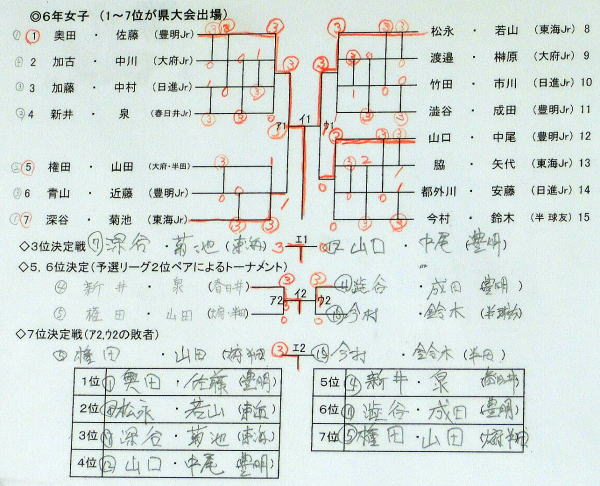 ◎6年女子 (1～7位が県大会出場)
1 奥田 ・ 佐藤 (豊明Jr)
2 加古 ・ 中川 (大府Jr)
3 加藤 ・ 中村 (日進Jr)
4 新井 ・ 泉 (春日井Jr)
5 権田 ・ 山田 (大府・半田)
6 青山 ・ 近藤 (豊明Jr)
7 深谷 ・ 菊池 (東海Jr)
松永 ・ 若山 (東海Jr) 8
渡邉 ・ 榊原 (大府Jr) 9
竹田 ・ 市川 (日進Jr) 10
澁谷 ・ 成田 (豊明Jr) 11
山口 ・ 中尾 (豊明Jr) 12
脇 ・ 矢代 (東海Jr) 13
都外川 ・ 安藤 (日進Jr) 14
今村 ・ 鈴木 (半 球友) 15
ア1 イ1 ウ1
◇3位決定戦 ⑦ 深谷 ・ 菊池 (東海) 3 エ1 0 12 山口 ・ 中尾 (豊明)
◇5，6位決定 (予選リーグ2位ペアによるトーナメント)
④ 新井 ・ 泉 (春日井) ⑪ 澁谷 成田 (豊明)
ア2 イ2 ウ2
⑤ 権田 ・ 山田 ⑮ 今村 ・ 鈴木
◇7位決定戦 (ア2，ウ2の敗者)
⑤ 権田 ・ 山田 3 エ2 ⑮ 今村 ・ 鈴木 (半田)
1位 ① 奥田 ・ 佐藤 (豊明)
2位 ⑧ 松永 ・ 若山 (東海)
3位 ⑦ 深谷 ・ 菊池 (東海)
4位 ⑫ 山口 ・ 中尾 (豊明)
5位 ④ 新井 ・ 泉 (春日井)
6位 ⑪ 澁谷 ・ 成田 (豊明)
7位 ⑤ 権田 ・ 山田